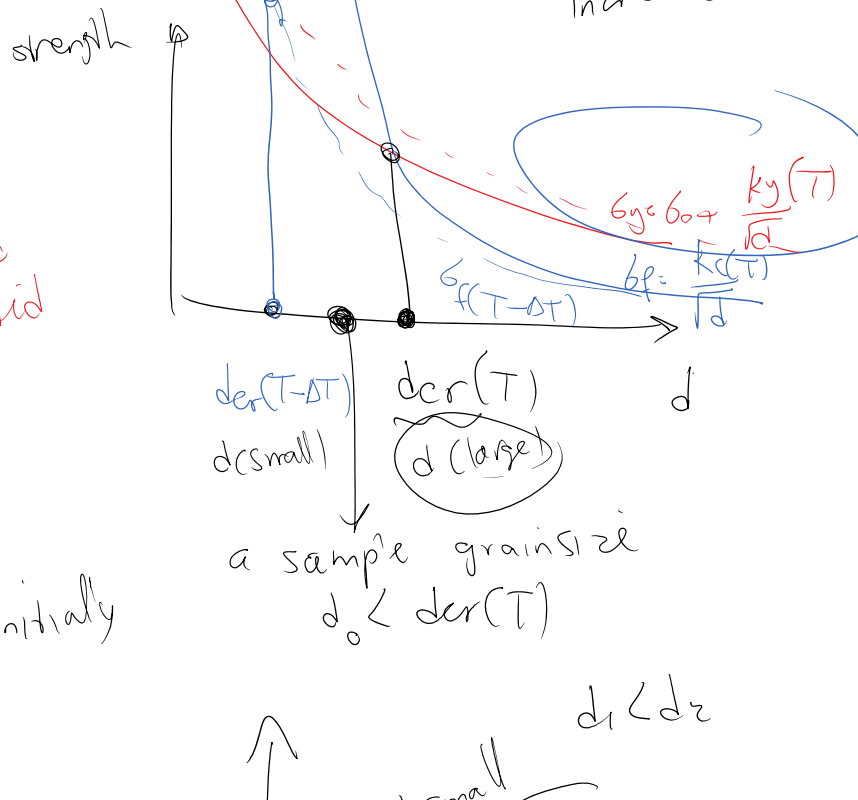 strength
σy = σ0 + ky(T)/√d
σf = kc(T)/√d
σf(T-ΔT)
dcr(T-ΔT)
dcr(T)
d
d(small)
d (large)
a sample grainsize
d0 < dcr(T)
d1 < d2
small